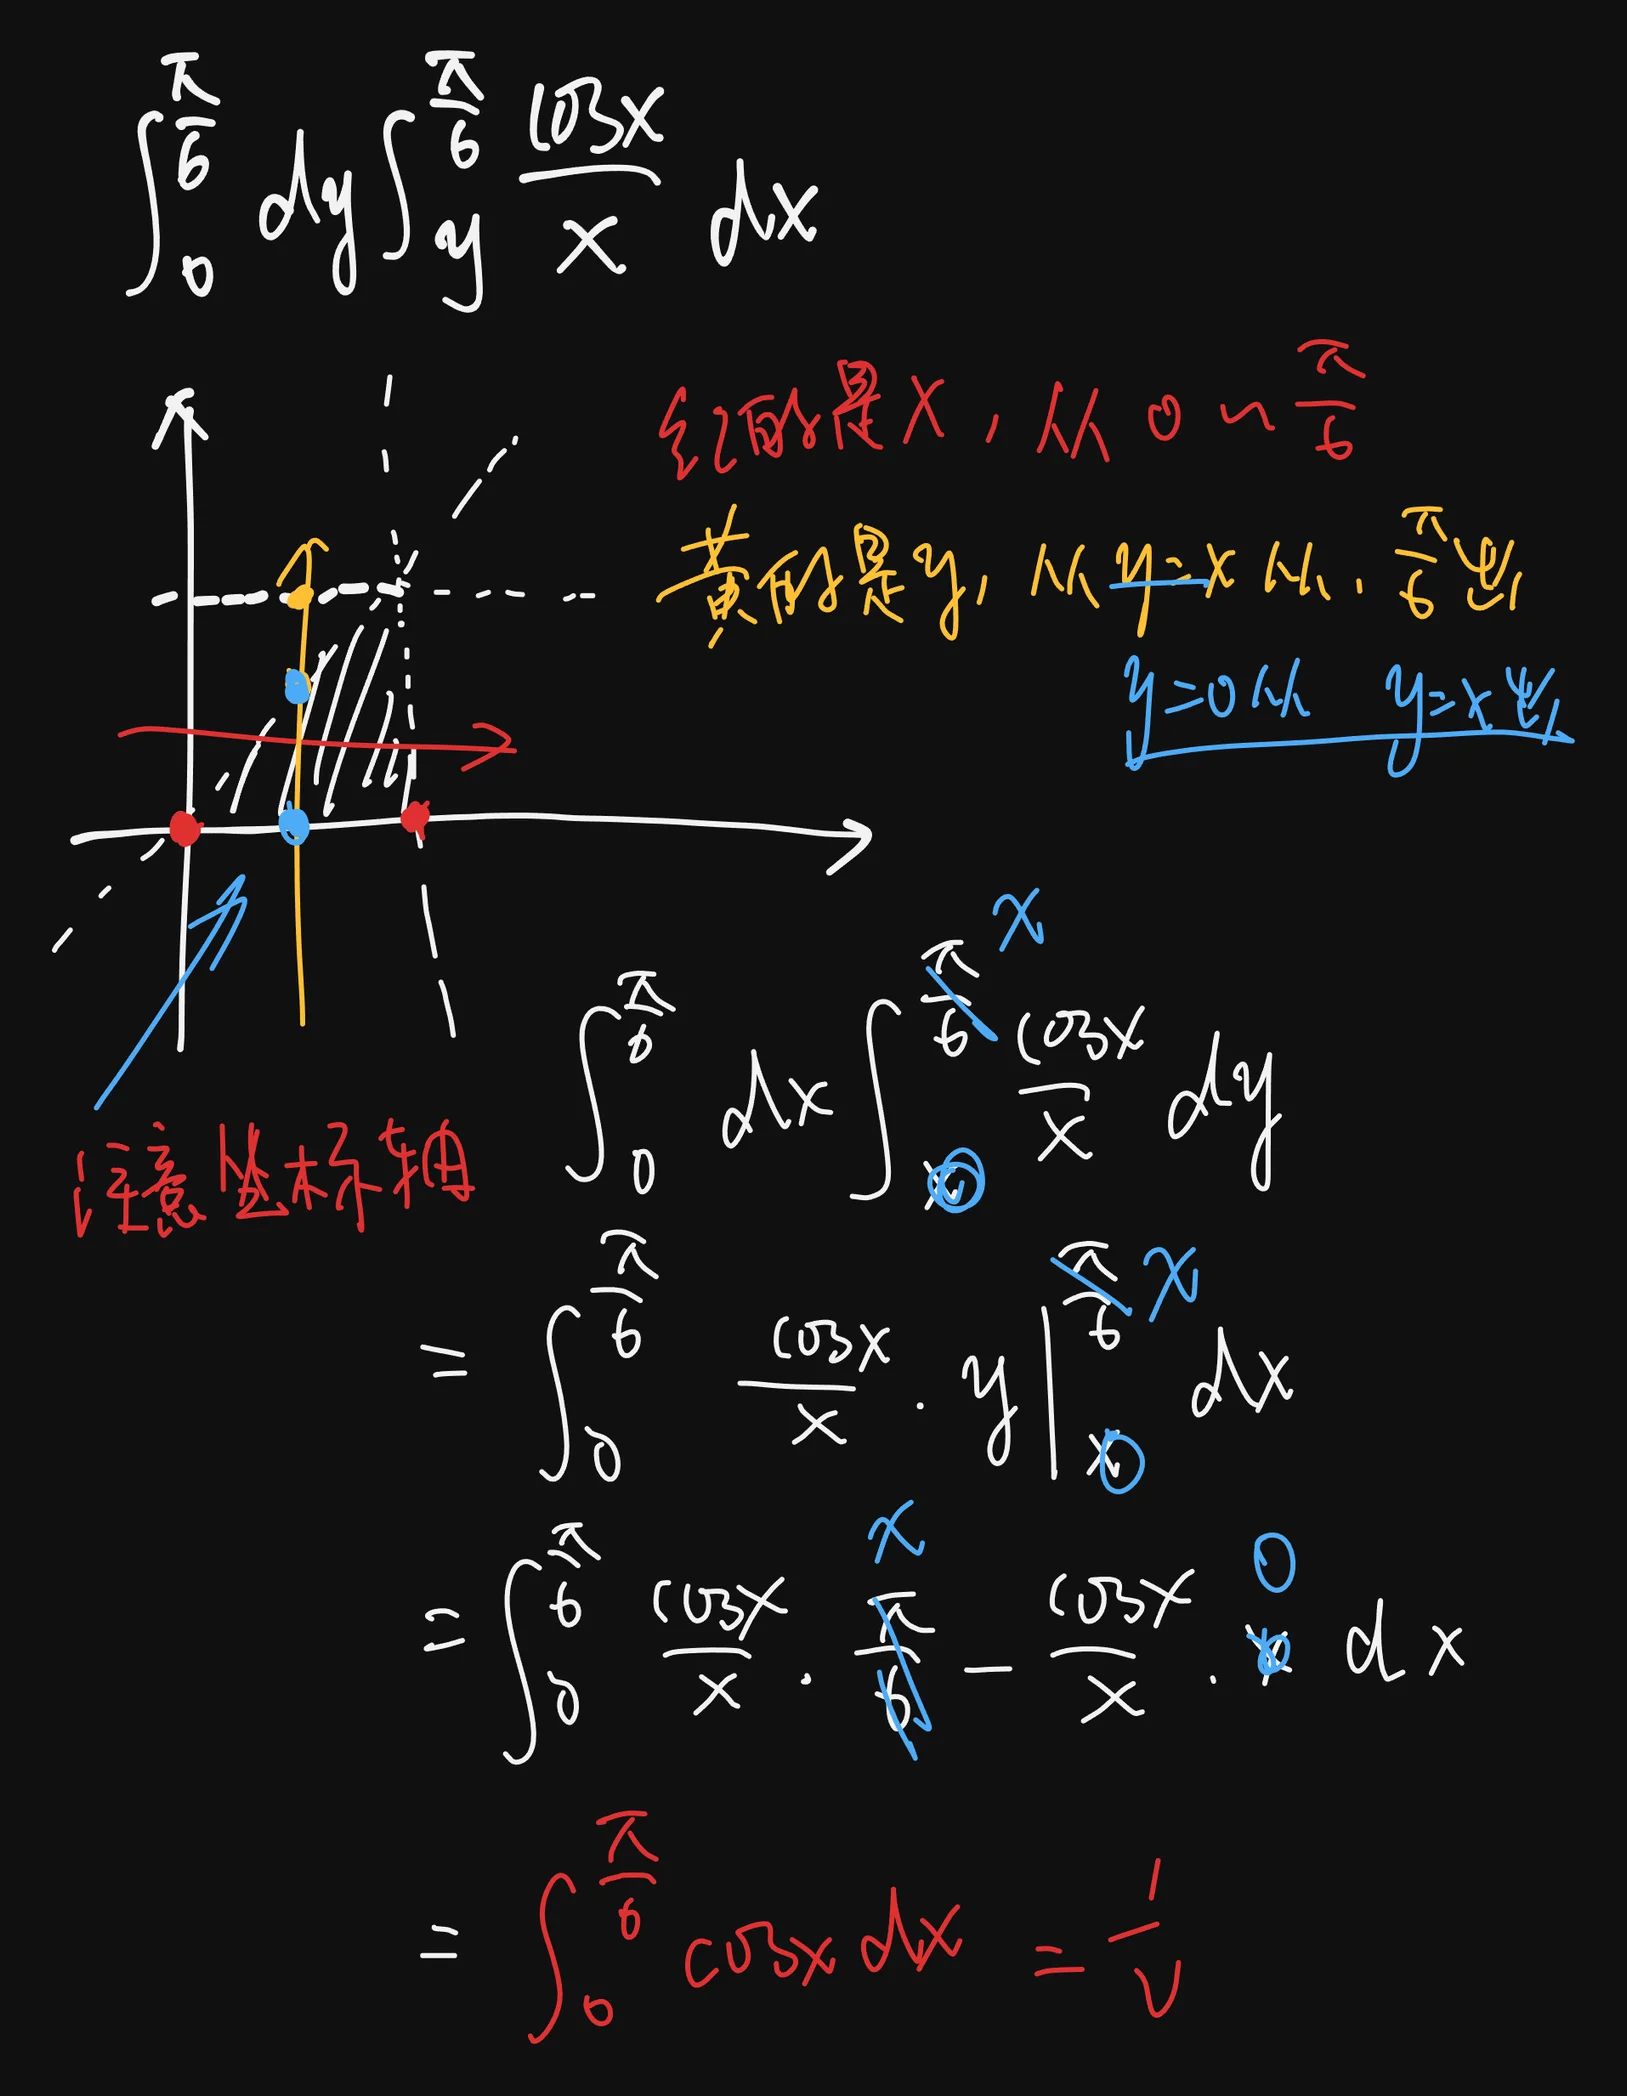 ∫_0^{π/6} dy ∫_y^{π/6} cosx/x dx
红的是x，从0~π/6
黄的是y，从y=x从．π/6出
y=0从 y=x出
注意坐标轴
∫_0^{π/6} dx ∫_{x 0}^{π/6 x} cosx/x dy
= ∫_0^{π/6} cosx/x · y |_{x 0}^{π/6 x} dx
= ∫_0^{π/6} cosx/x · π/6 x − cosx/x · x 0 dx
= ∫_0^{π/6} cosx dx = 1/2